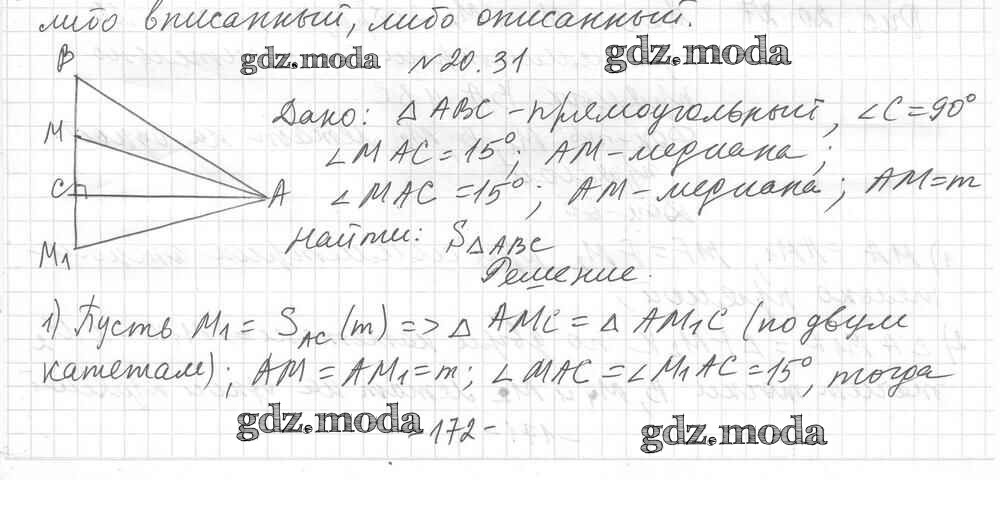 либо вписанный, либо описанный.
gdz.moda №20.31 gdz.moda
B
M
C
A
M₁
Дано: △ ABC - прямоугольный, ∠C = 90°
∠MAC = 15°; AM - медиана;
∠MAC = 15°; AM - медиана; AM = m
Найти: S△ABC
Решение.
1) Пусть M₁ = S_AC (m) => △ AMC = △ AM₁C (по двум
катетам); AM = AM₁ = m; ∠MAC = ∠M₁AC = 15°, тогда
gdz.moda - 172 - gdz.moda